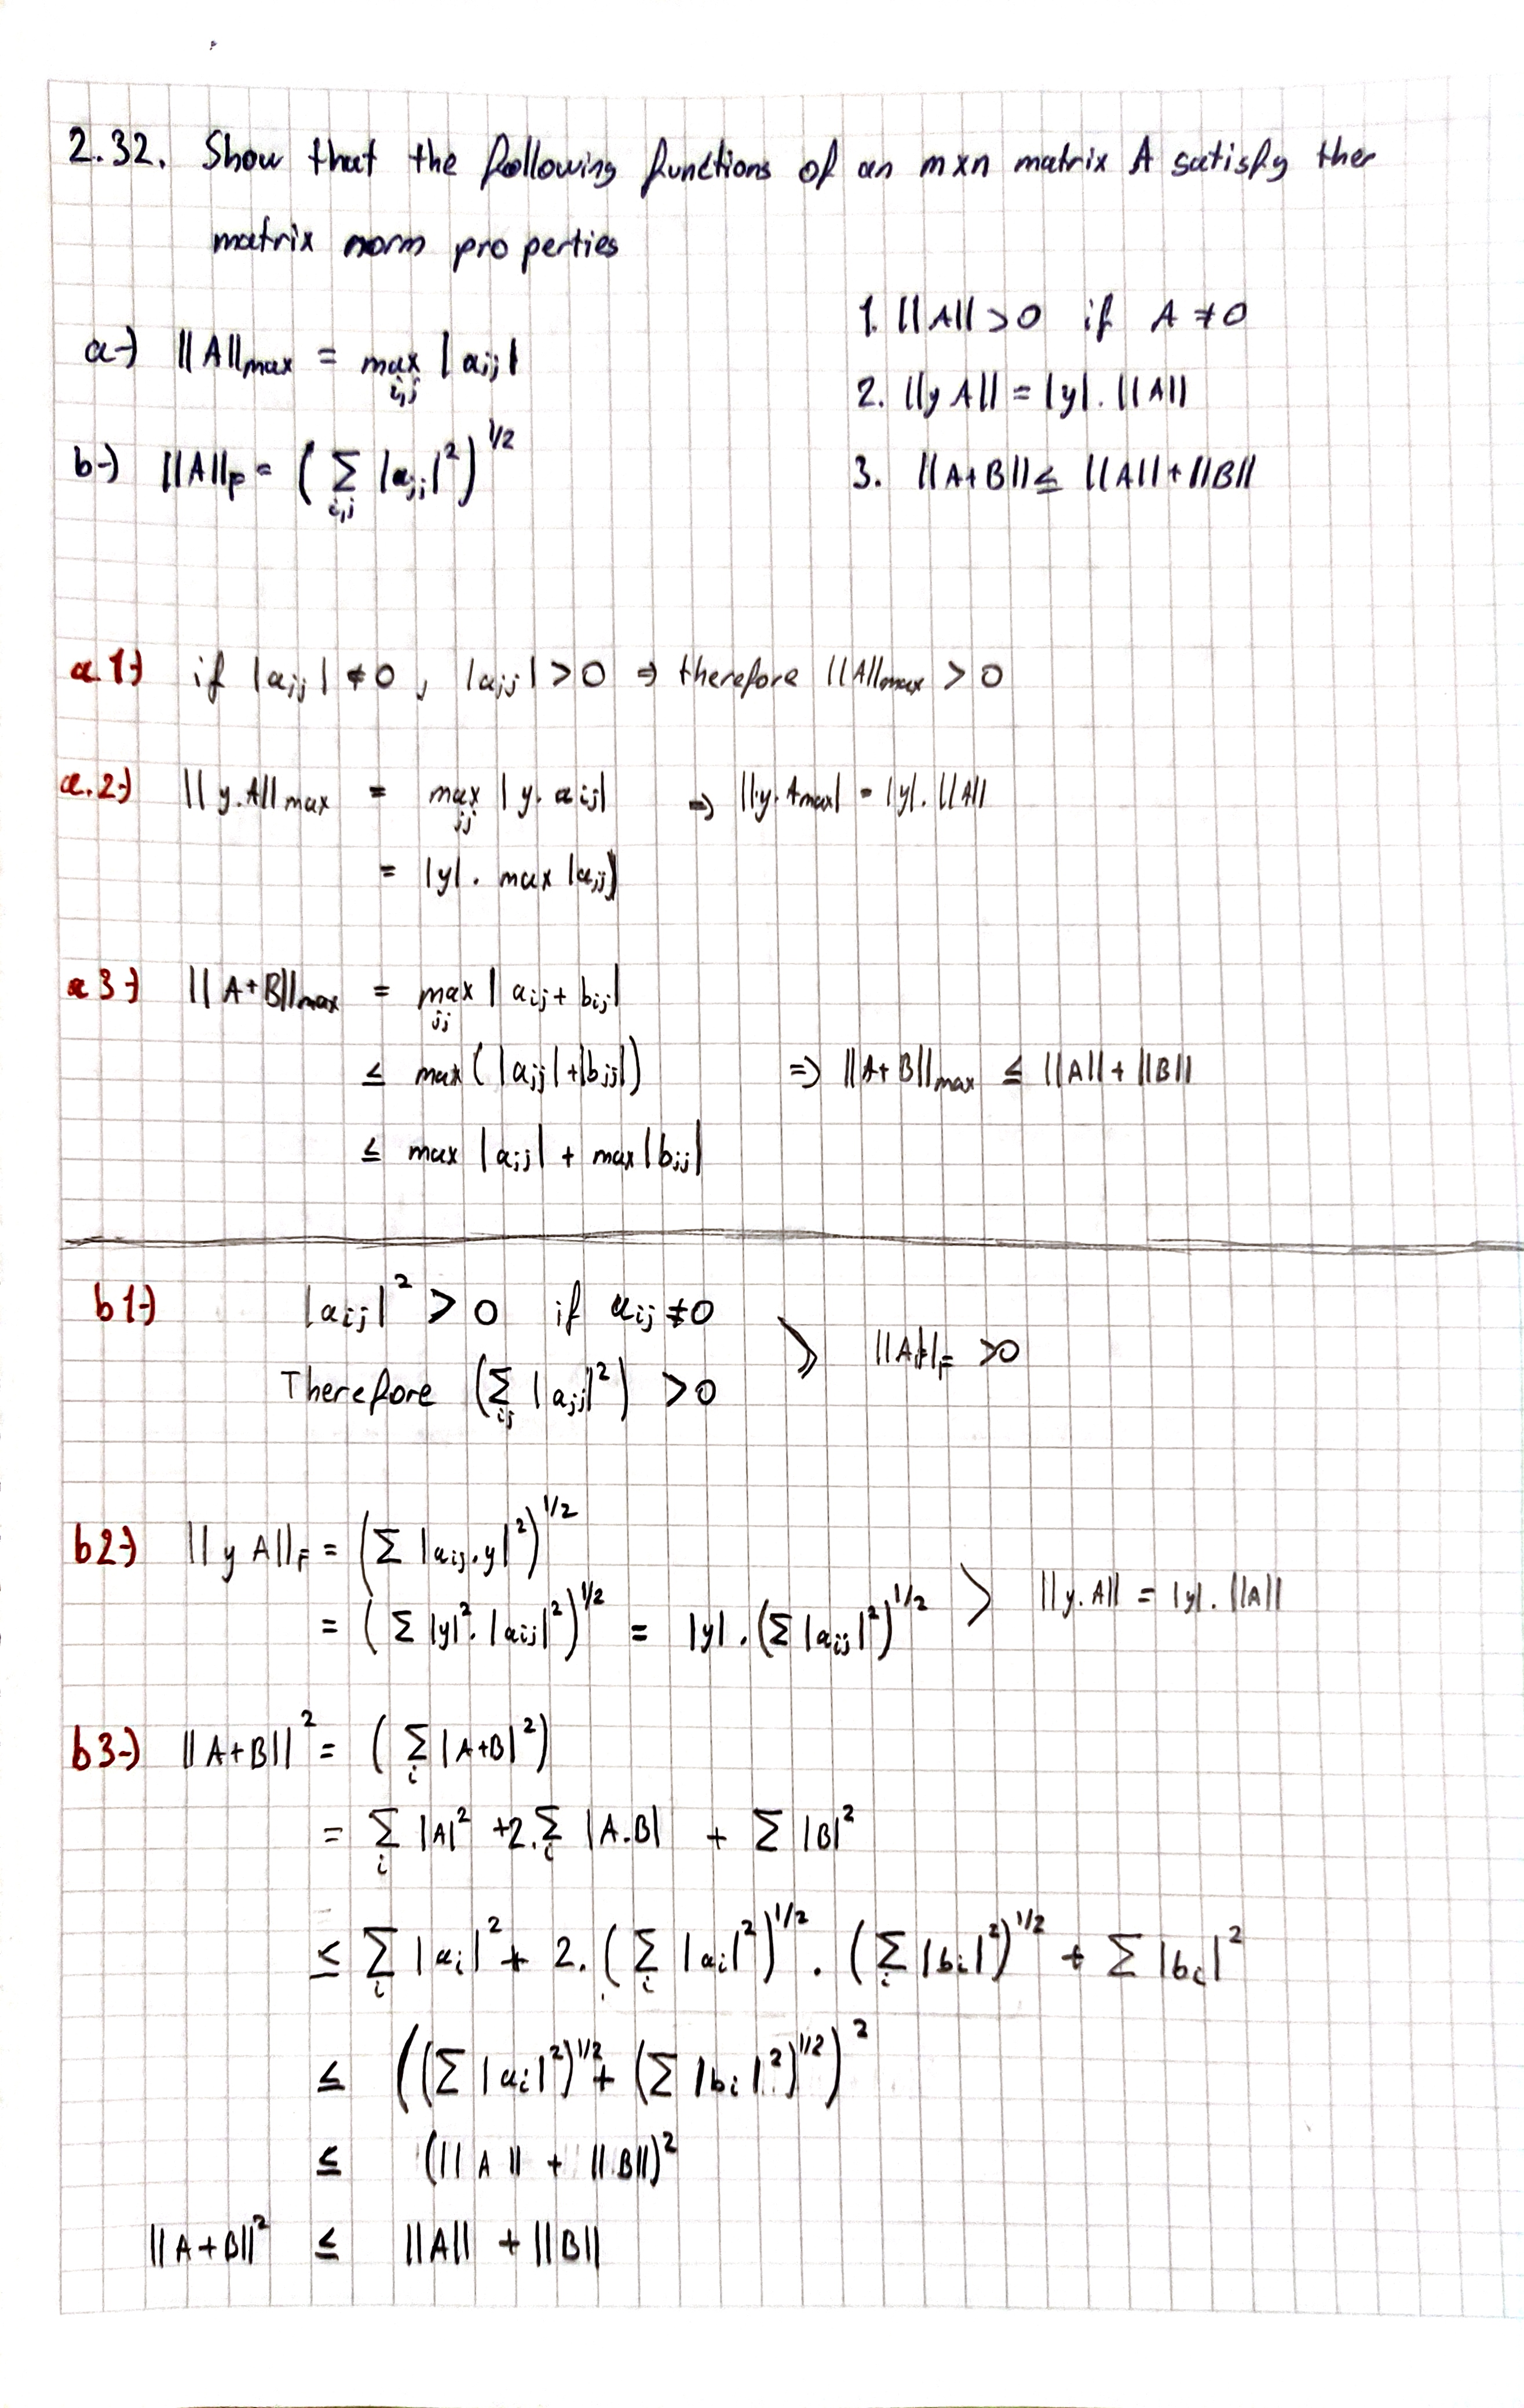 2.32. Show that the following functions of an mxn matrix A satisfy ther
matrix norm properties
1. ||A|| > 0 if A ≠ 0
a-) ||A||max = max i,j |aij|
2. ||y A|| = |y|. ||A||
b-) ||A||F = ( Σ i,j |aij|²)^1/2
3. ||A+B|| ≤ ||A|| + ||B||
a.1-) if |aij| ≠ 0 , |aij| > 0 ⇒ therefore ||A||max > 0
a.2-) ||y.A||max = max ij |y. aij| ⇒ ||y. Amax| = |y|. ||A||
= |y|. max |aij|
a3-) ||A+B||max = max ij |aij + bij|
≤ max ( |aij| + |bij|) ⇒ ||A+B||max ≤ ||A|| + ||B||
≤ max |aij| + max |bij|
b1-) |aij|² > 0 if aij ≠ 0
||A||F > 0
Therefore (Σ ij |aij|²) > 0
b2-) ||y A||F = (Σ |aij.y|²)^1/2
= ( Σ |y|². |aij|²)^1/2 = |y| . (Σ |aij|²)^1/2 > ||y.A|| = |y|. ||A||
b3-) ||A+B||² = ( Σ i |A+B|²)
= Σ i |A|² +2. Σ i |A.B| + Σ |B|²
≤ Σ i |ai|² + 2. ( Σ i |ai|²)^1/2 . ( Σ i |bi|²)^1/2 + Σ |bi|²
≤ ((Σ |ai|²)^1/2 + (Σ |bi|²)^1/2)²
≤ (||A|| + ||B||)²
||A+B||² ≤ ||A|| + ||B||